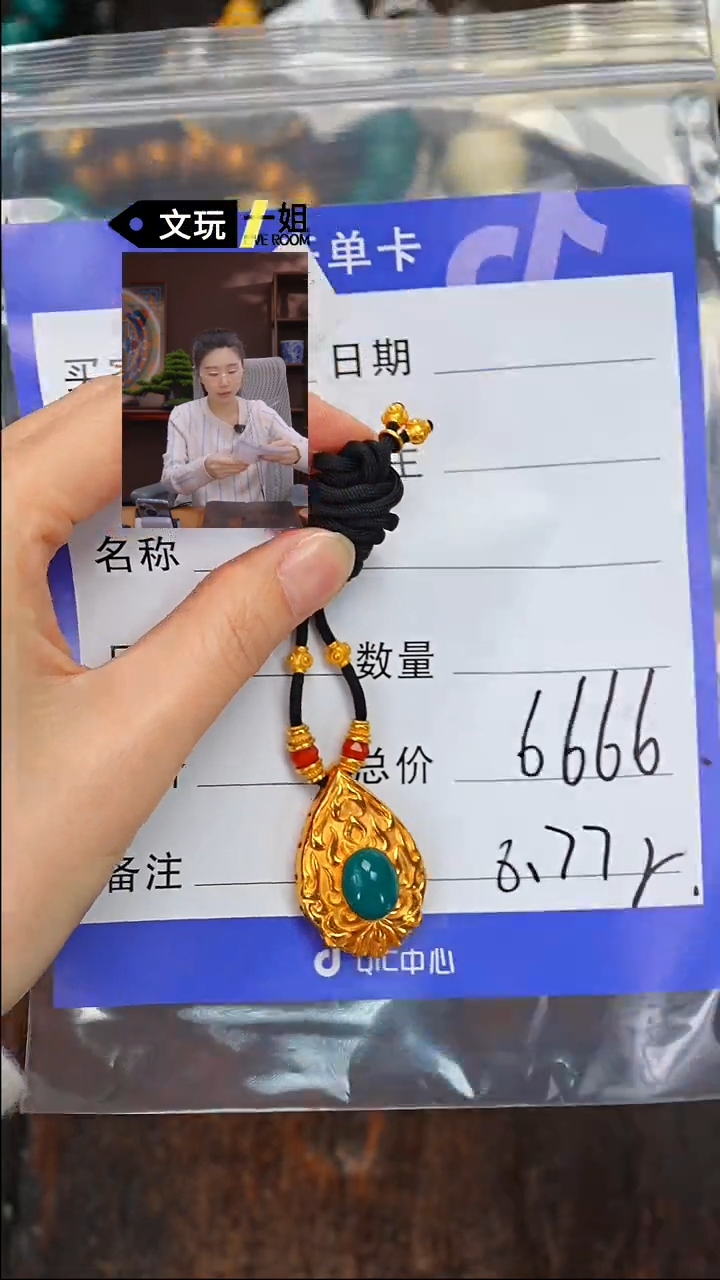 文玩一姐
LIVE ROOM
单卡
日期
名称
数量
总价 6666
备注
QIC中心